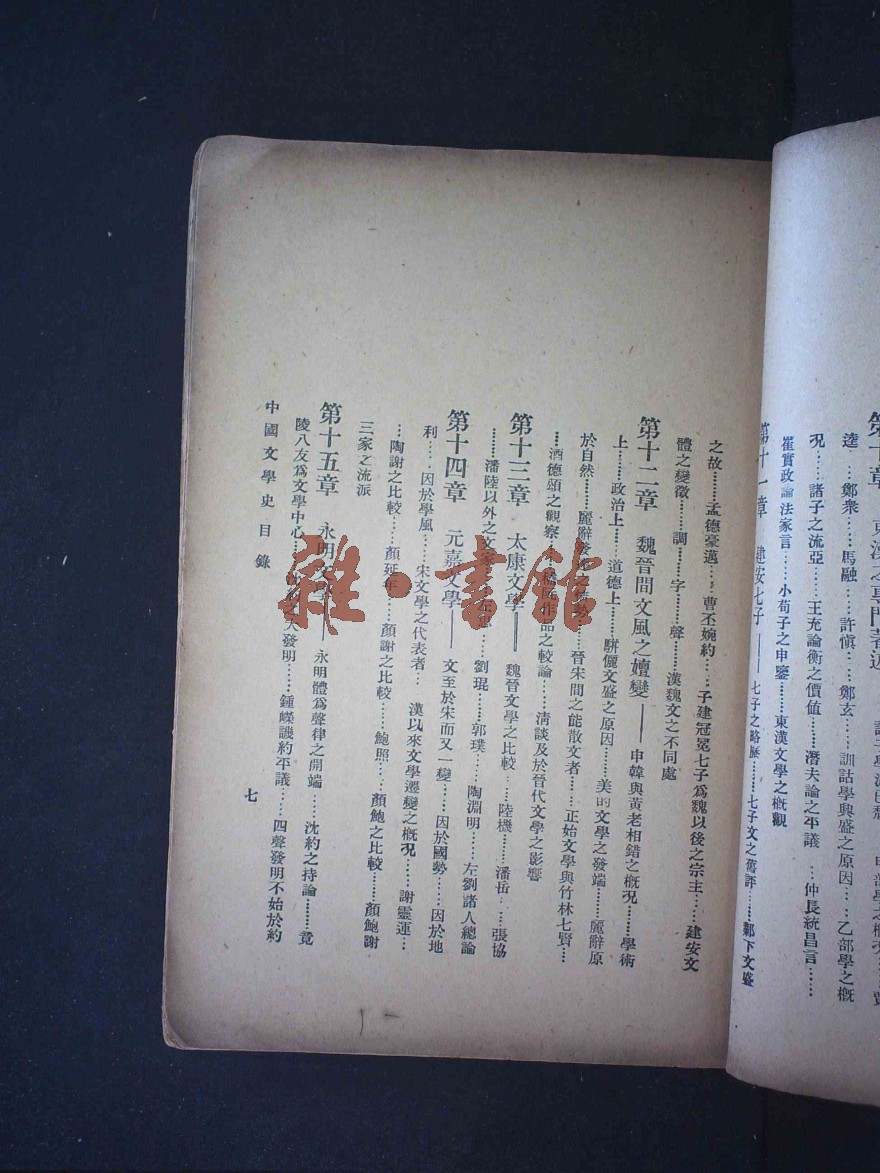 第十章　東漢之專門著述
逵……鄭衆……馬融……許愼……鄭玄……訓詁學興盛之原因……乙部學之概
况……諸子之流亞……王充論衡之價値……潛夫論之平議……仲長統昌言……
崔實政論法家言……小荀子之申鑒……東漢文學之概觀
第十一章　建安七子——七子之略歷……七子文之舊評……鄴下文盛
之故……孟德豪邁……曹丕婉約……子建冠冕七子爲魏以後之宗主……建安文
體之變徵……調……字……聲……漢魏文之不同處
第十二章　魏晉間文風之嬗變——申韓與黃老相錯之概况……學術
上……政治上……道德上……駢儷文盛之原因……美的文學之發端……麗辭原
於自然……麗辭……晉宋間之能散文者……正始文學與竹林七賢……
酒德頌之觀察……作品之較論……淸談及於晉代文學之影響
第十三章　太康文學——魏晉文學之比較……陸機……潘岳……張協
……潘陸以外之文家……劉琨……郭璞……陶淵明……左劉諸人總論
第十四章　元嘉文學——文至於宋而又一變……因於國勢……因於地
利……因於學風……宋文學之代表者……漢以來文學遷變之概况……謝靈運…
…陶謝之比較……顏延年……顏謝之比較……鮑照……顏鮑之比較……顏鮑謝
三家之流派
第十五章　永明文學——永明體爲聲律之開端……沈約之持論……竟
陵八友爲文學中心……之大發明……鍾嶸譏約平議……四聲發明不始於約
中國文學史目錄
七
雜·書館